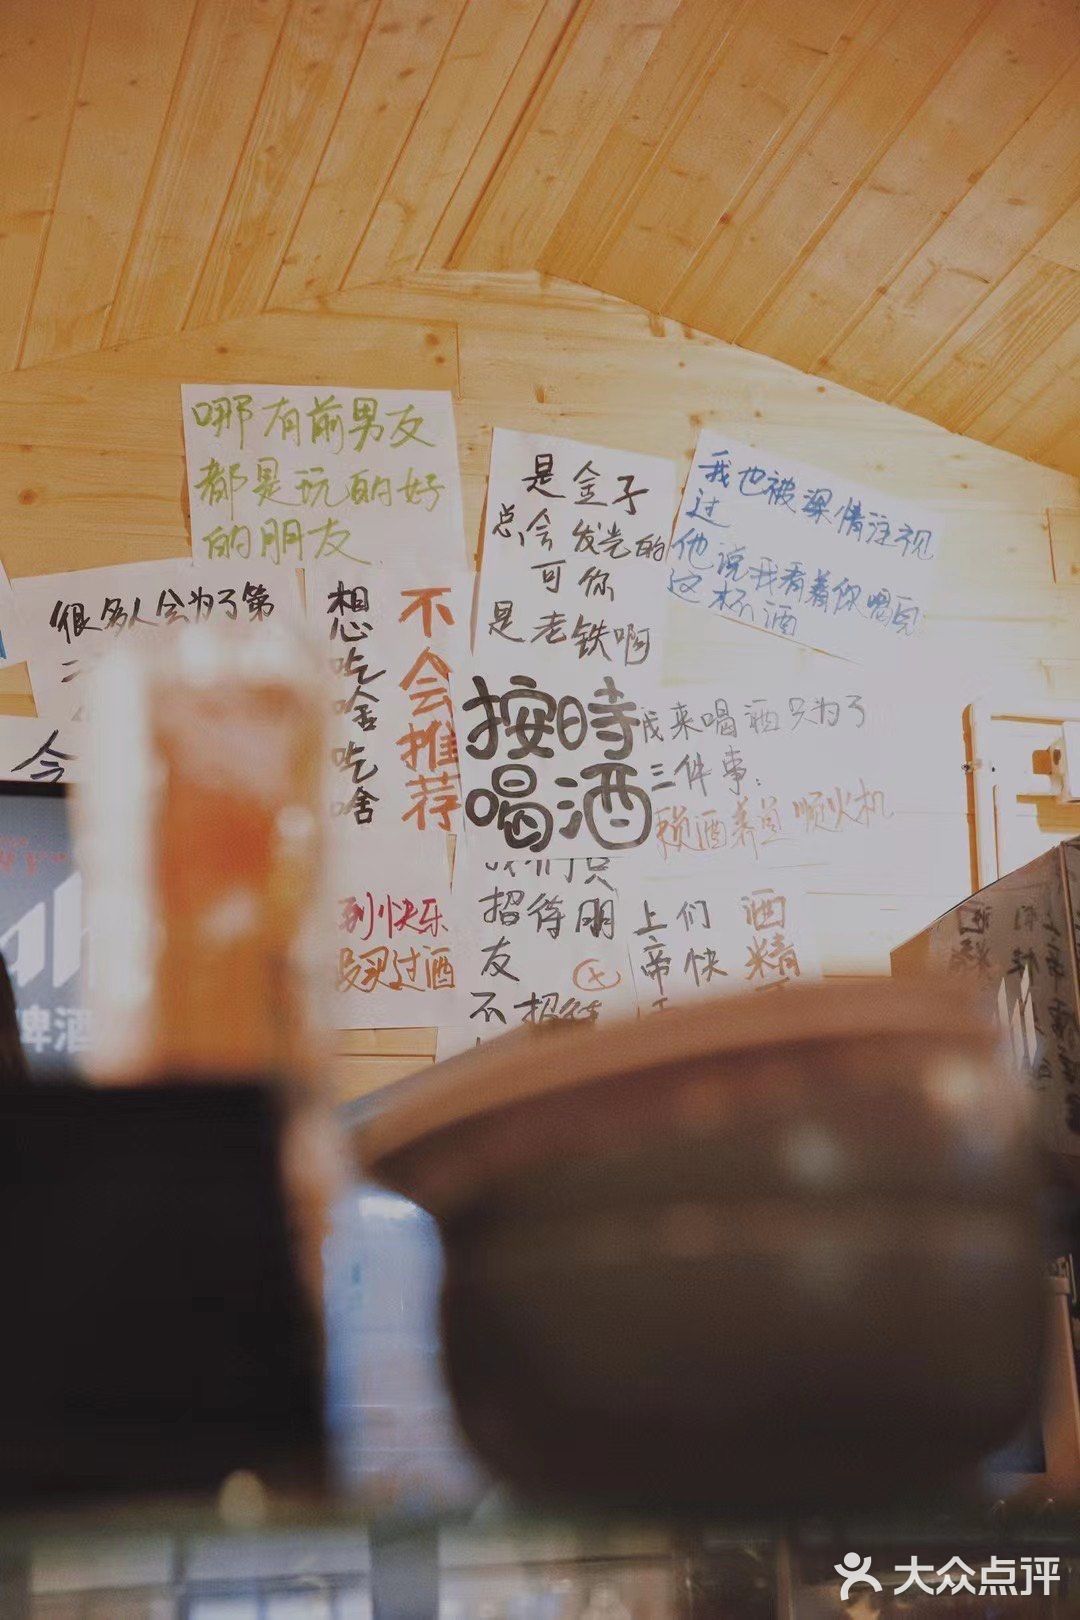 哪有前男友
都是玩的好
的朋友
是金子
总会发光的
可你
是老铁啊
我也被深情注视
过
他说我看着你喝完
这杯酒
很多人会为了第
二
今
想吃啥吃啥
不会推荐
按時
喝酒
我来喝酒只为了
三件事:
赖酒养鱼顺火机
到快乐
没买过酒
我们只
招待朋
友
不招待
上们酒
帝快精
啤酒
大众点评